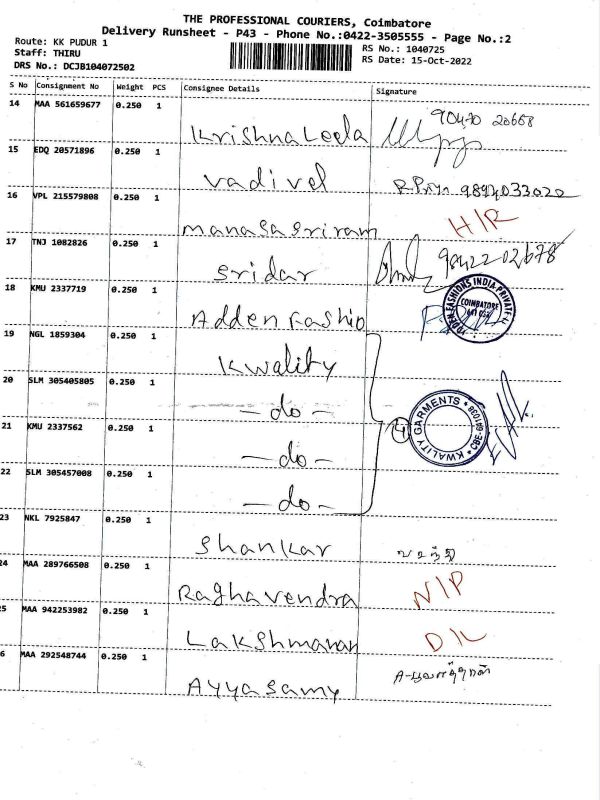 THE PROFESSIONAL COURIERS, Coimbatore
Delivery Runsheet - P43 - Phone No.:0422-3505555 - Page No.:2
Route: KK PUDUR 1
RS No.: 1040725
Staff: THIRU
RS Date: 15-Oct-2022
DRS No.: DCJB104072502
S No Consignment No Weight PCS Consignee Details Signature
14 MAA 561659677 0.250 1 Krishna Leela 90470 20668
15 EDQ 20571896 0.250 1 Vadivel R.Priya 9894033020
16 VPL 215579808 0.250 1 manasasriram H/R
17 TNJ 1082826 0.250 1 Sridar 98422 02678
18 KMU 2337719 0.250 1 Adden Fashio
COIMBATORE
19 NGL 1859304 0.250 1 Kwality
20 SLM 305405805 0.250 1 - do -
21 KMU 2337562 0.250 1 - do - 4 KWALITY GARMENTS
22 SLM 305457008 0.250 1 - do -
23 NKL 7925847 0.250 1 Shankar
24 MAA 289766508 0.250 1 Raghavendra N/P
5 MAA 942253982 0.250 1 Lakshmanan D/L
6 MAA 292548744 0.250 1 Ayyasamy